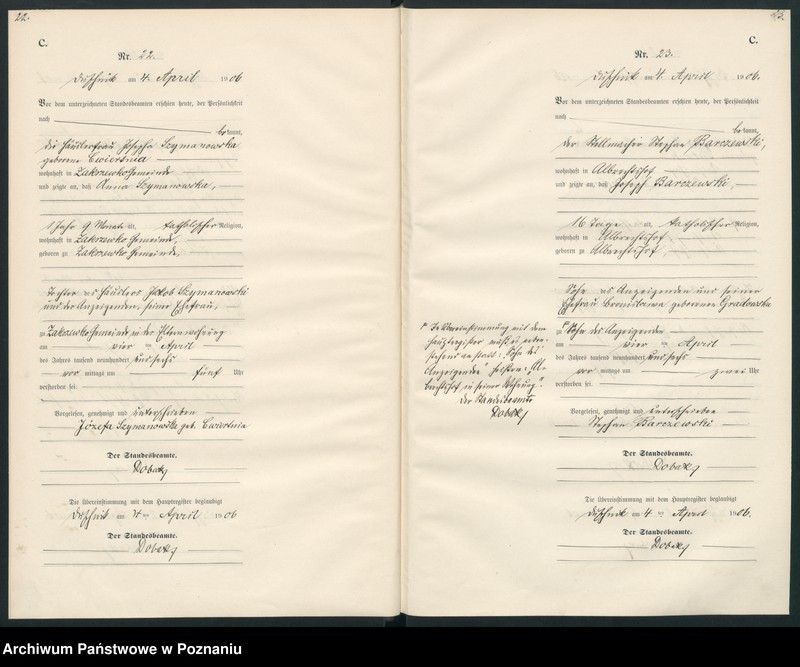 22.
C.
Nr. 22.
Duschnik am 4. April 1906
Vor dem unterzeichneten Standesbeamten erschien heute, der Persönlichkeit
nach
bekannt,
die Häuslerfrau Josepha Szymanowska
geborene Cwiertnia
wohnhaft in Zakrzewko Gemeinde
und zeigte an, daß Anna Szymanowska,
1 Jahr 9 Monate alt, katholischer Religion,
wohnhaft in Zakrzewko Gemeinde,
geboren zu Zakrzewko Gemeinde,
Tochter des Häuslers Jakob Szymanowski
und der Anzeigenden, seiner Ehefrau,
zu Zakrzewko Gemeinde, in der Elternwohnung
am vier ten April
des Jahres tausend neunhundert und sechs
vor mittags um fünf Uhr
verstorben sei.
Vorgelesen, genehmigt und unterschrieben
Józefa Szymanowska geb. Cwiertnia
Der Standesbeamte.
Die Übereinstimmung mit dem Hauptregister beglaubigt
Duschnik am 4. ten April 1906
Der Standesbeamte.
23.
C.
Nr. 23.
Duschnik am 4. April 1906.
Vor dem unterzeichneten Standesbeamten erschien heute, der Persönlichkeit
nach
bekannt,
der Stellmacher Stephan Barczewski,
wohnhaft in Albrechtshof
und zeigte an, daß Joseph Barczewski,
16 Tage alt, katholischer Religion,
wohnhaft in Albrechtshof
geboren zu Albrechtshof,
Sohn des Anzeigenden und seiner
Ehefrau Bronislawa geborenen Gradowska
zu Sohn des Anzeigenden
am vier ten April
des Jahres tausend neunhundert und sechs
vor mittags um zwei Uhr
verstorben sei.
Vorgelesen, genehmigt und unterschrieben
Stephan Barczewski
Der Standesbeamte.
Die Übereinstimmung mit dem Hauptregister beglaubigt
Duschnik am 4 ten April 1906.
Der Standesbeamte.
In Übereinstimmung mit dem
Hauptregister muß es oben-
stehend anstatt: "Sohn des
Anzeigenden" heißen: "Al-
brechtshof in seiner Wohnung".
Der Standesbeamte
Archiwum Państwowe w Poznaniu